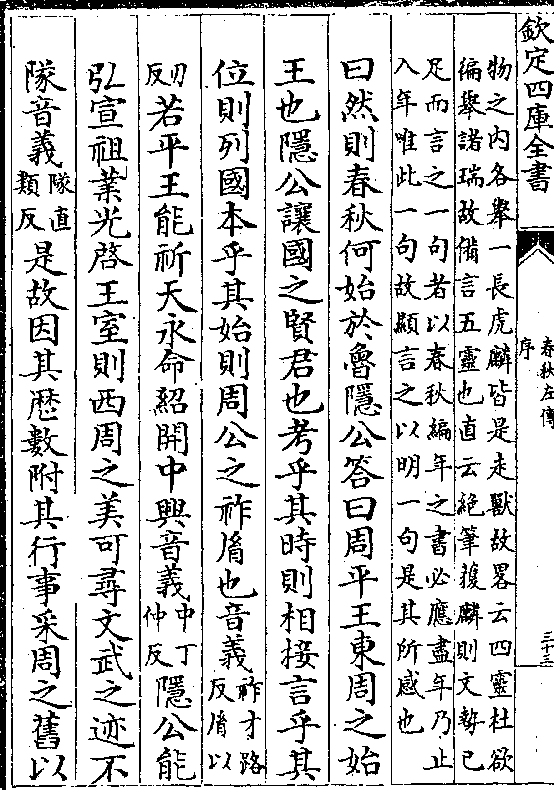 欽定四庫全書
春秋左傳
序
三十三
物之内各舉一長虎麟皆是走獸故畧云四靈杜欲
徧舉諸瑞故備言五靈也直云絶筆獲麟則文勢已
足而言之一句者以春秋編年之書必應盡年乃止
入年唯此一句故顯言之以明一句是其所感也
曰然則春秋何始於魯隱公答曰周平王東周之始
王也隱公讓國之賢君也考乎其時則相接言乎其
位則列國本乎其始則周公之祚𦙍也音義祚才路反𦙍以
刃反若平王能祈天永命紹開中興音義中丁仲反隱公能
弘宣祖業光啓王室則西周之美可尋文武之迹不
隊音義隊直類反是故因其歴數附其行事采周之舊以